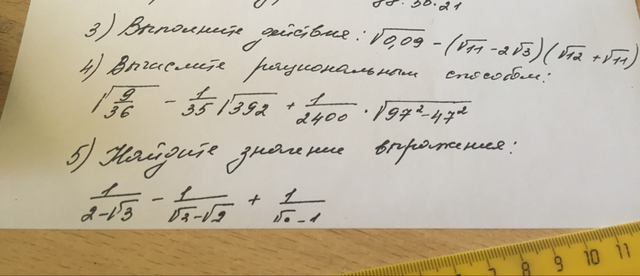 3) Выполните действия: √0,09 − (√11 − 2√3)(√12 + √11)
4) Вычислите рациональным способом:
√(9/36) − 1/35 √392 + 1/2400 · √(97² − 47²)
5) Найдите значение выражения:
1/(2−√3) − 1/(√3−√2) + 1/(√2−1)
7 8 9 10 11